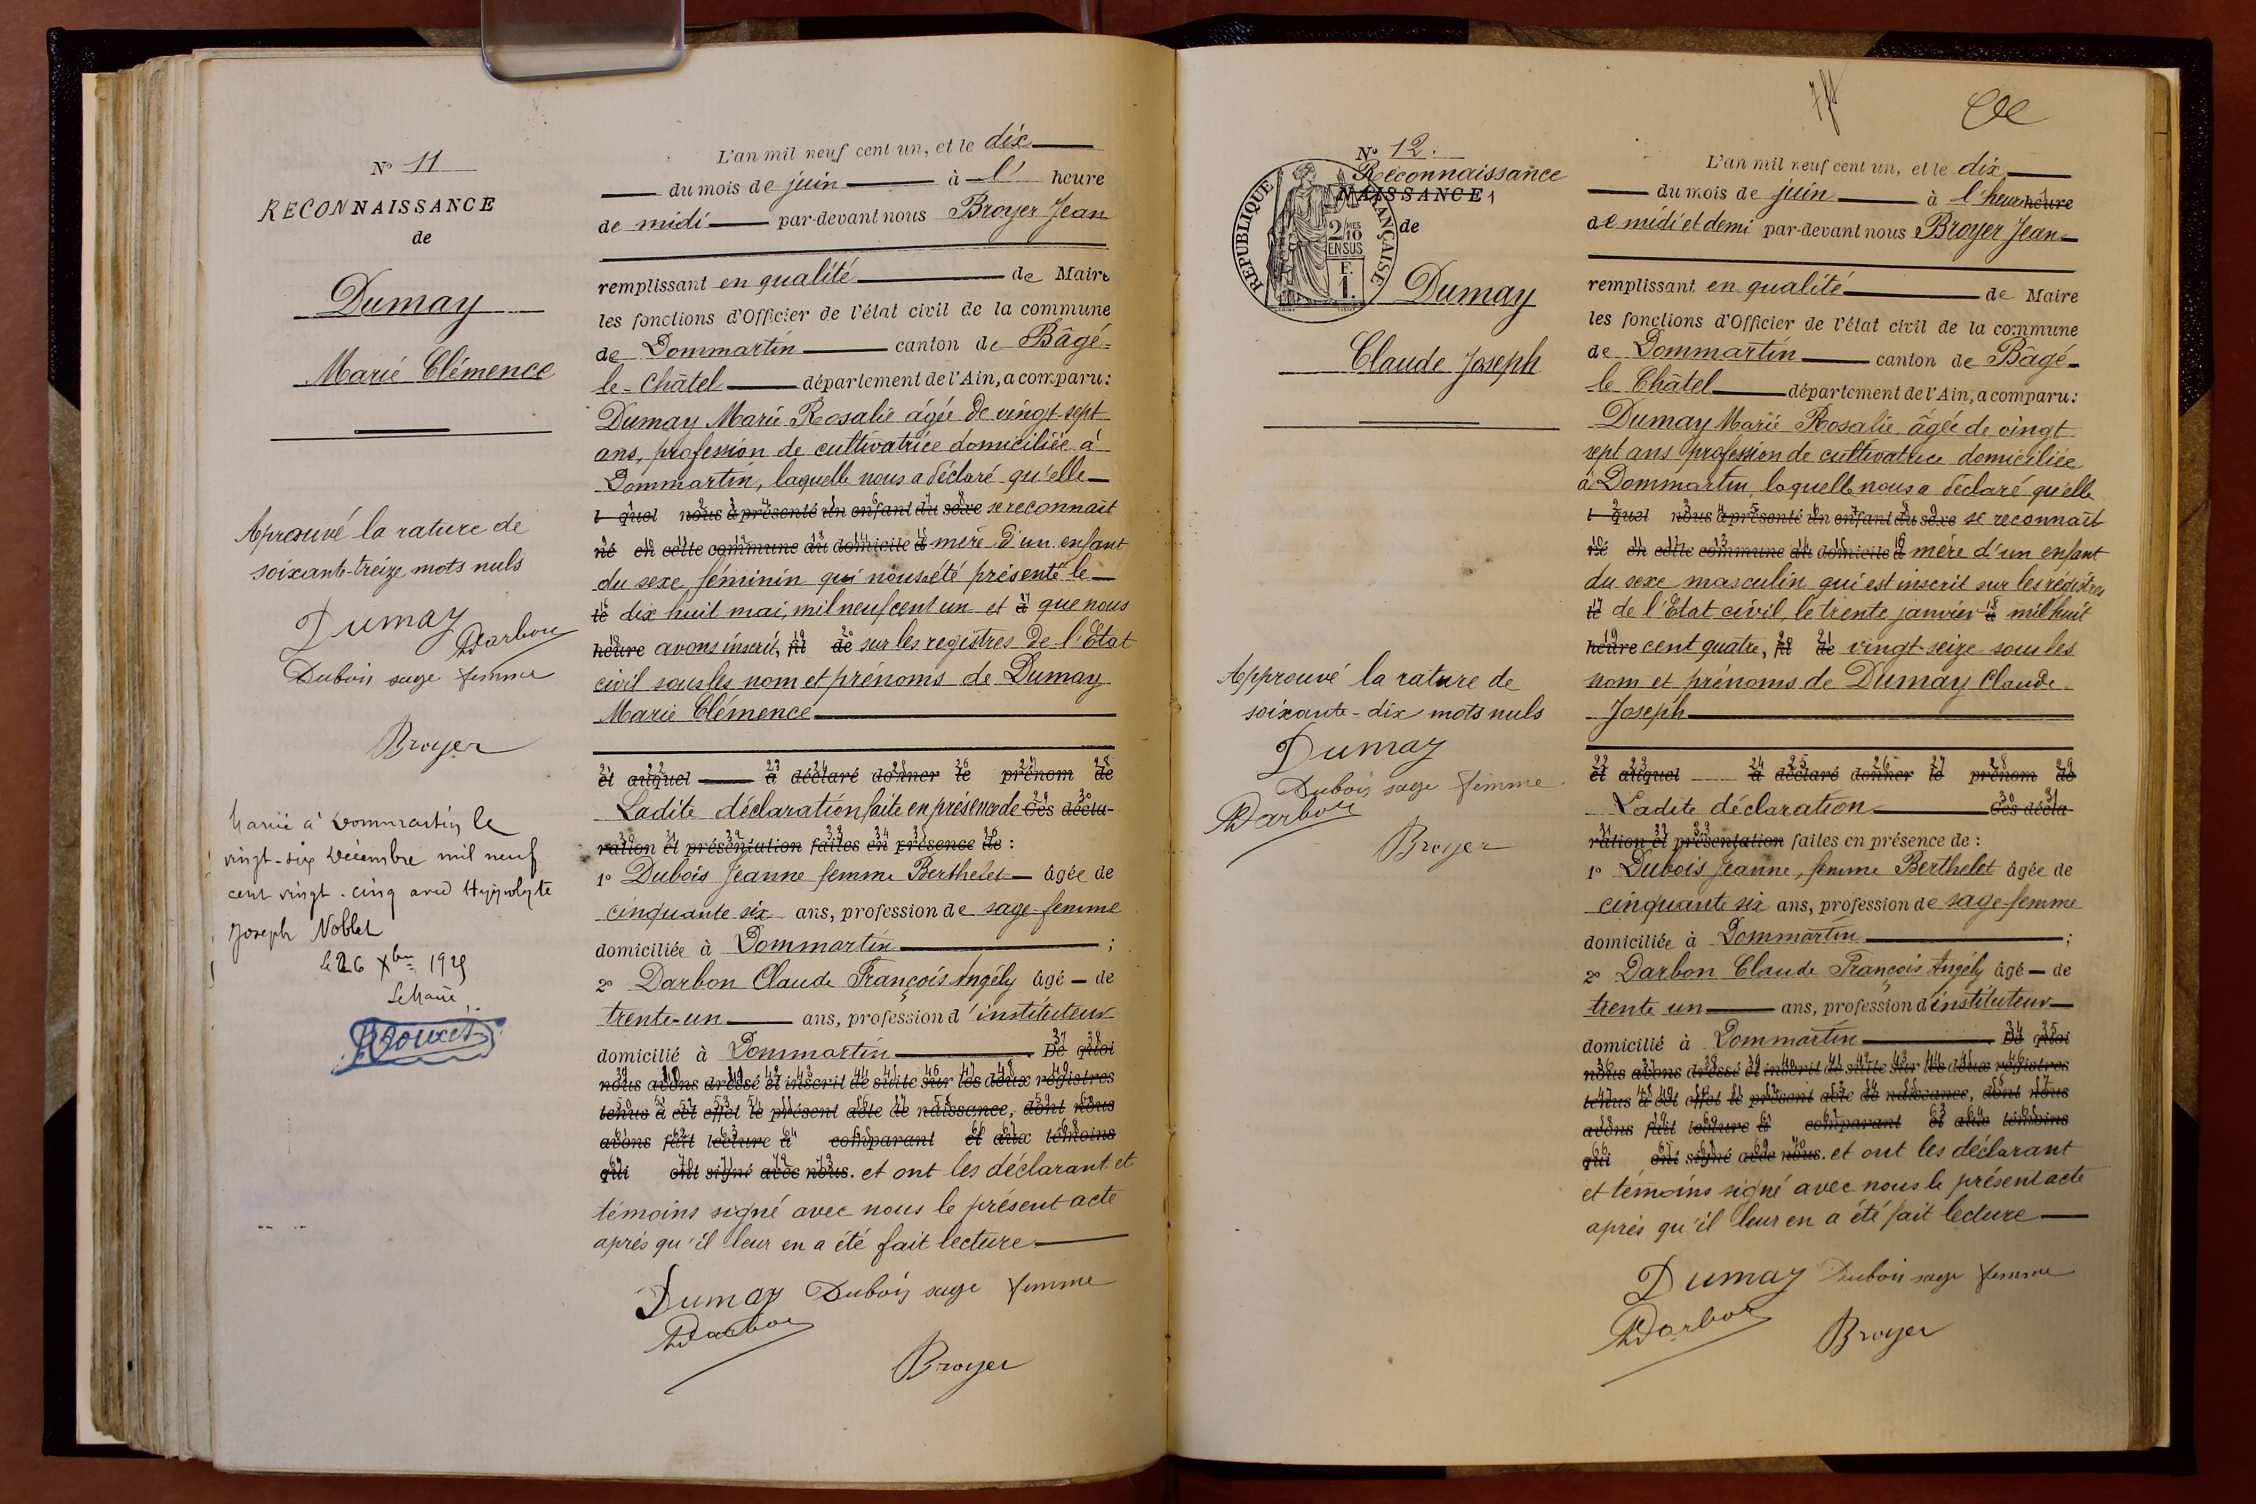 N° 11
RECONNAISSANCE
de
Dumay
Marie Clémence
Aprouvé la rature de
soixante-treize mots nuls
Dumay
Darbon
Dubois sage femme
Broyer
Marié à Dommartin le
vingt-six Décembre mil neuf
cent vingt-cinq avec Hyppolyte
Joseph Noblet
le 26 Xbre 1925
Le Maire
L'an mil neuf cent un, et le dix
du mois de juin à l' heure
de midi par-devant nous Broyer Jean
remplissant en qualité de Maire
les fonctions d'Officier de l'état civil de la commune
de Dommartin canton de Bâgé-
le-Châtel département de l'Ain, a comparu:
Dumay Marie Rosalie âgée de vingt-sept
ans, profession de cultivatrice domiciliée à
Dommartin, laquelle nous a déclaré qu'elle
l quel nous a présenté un enfant du sexe se reconnaît
né en cette commune au domicile d mère d'un enfant
du sexe féminin qui nous a été présenté le
le dix huit mai, mil neuf cent un et à que nous
heure avons inscrit, fil de sur les registres de l'Etat
civil sous les nom et prénoms de Dumay
Marie Clémence
et auquel a déclaré donner le prénom de
Ladite déclaration faite en présence de Ces décla-
ration et présentation faites en présence de :
1° Dubois Jeanne femme Berthelet âgée de
cinquante six ans, profession de sage-femme
domiciliée à Dommartin ;
2° Darbon Claude François Angély âgé de
trente-un ans, profession d'instituteur
domicilié à Dommartin De quoi
nous avons dressé et inscrit de suite sur les deux registres
tenus à cet effet le présent acte de naissance, dont nous
avons fait lecture à comparant et aux témoins
qui ont signé avec nous. et ont les déclarant et
témoins signé avec nous le présent acte
après qu'il leur en a été fait lecture
Dumay Dubois sage femme
Darbon
Broyer
N° 12.
Reconnaissance
NAISSANCE 1
de
REPUBLIQUE FRANÇAISE
2/10
EN SUS
F.
1.
Dumay
Claude Joseph
Approuvé la rature de
soixante-dix mots nuls
Dumay
Dubois sage femme
Darbon
Broyer
L'an mil neuf cent un, et le dix
du mois de juin à l'heure heure
de midi et demi par-devant nous Broyer Jean
remplissant en qualité de Maire
les fonctions d'Officier de l'état civil de la commune
de Dommartin canton de Bâgé-
le Châtel département de l'Ain, a comparu:
Dumay Marie Rosalie âgée de vingt
sept ans profession de cultivatrice domiciliée
à Dommartin laquelle nous a déclaré qu'elle
l quel nous a présenté un enfant du sexe se reconnaît
né en cette commune au domicile d mère d'un enfant
du sexe masculin qui est inscrit sur les régistres
le de l'Etat civil, le trente janvier à mil huit
heure cent quatre, fil de vingt-seize sous les
nom et prénoms de Dumay Claude
Joseph
et auquel a déclaré donner le prénom de
Ladite déclaration Ces décla-
ration et présentation faites en présence de :
1° Dubois Jeanne, femme Berthelet âgée de
cinquante six ans, profession de sage-femme
domiciliée à Dommartin ;
2° Darbon Claude François Angély âgé de
trente un ans, profession d'instituteur
domicilié à Dommartin De quoi
nous avons dressé et inscrit de suite sur les deux registres
tenus à cet effet le présent acte de naissance, dont nous
avons fait lecture à comparant et aux témoins
qui ont signé avec nous. et ont les déclarant
et témoins signé avec nous le présent acte
après qu'il leur en a été fait lecture
Dumay Dubois sage femme
Darbon
Broyer